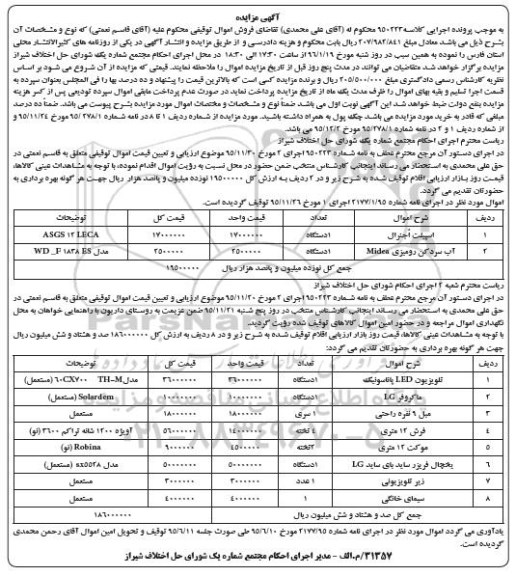 آگهی مزایده
به موجب پرونده اجرایی کلاسه ۹۵۰۲۲۳ محکوم له (آقای علی محمدی) تقاضای فروش اموال توقیفی محکوم علیه (آقای قاسم نعمتی) که نوع و مشخصات آن
بشرح ذیل می باشد معادل مبلغ ۲۰۷/۹۸۲/۸۴۱ ریال بابت محکوم و هزینه دادرسی و از طریق مزایده و انتشار آگهی در یکی از روزنامه های کثیرالانتشار محلی
استان فارس را نموده به همین سبب در روز شنبه مورخ ۹۶/۱/۱۹ از ساعت ۱۷:۳۰ الی ۱۸:۳۰ در محل اجرای احکام مجتمع شماره یک شورای حل اختلاف شیراز
مزایده برگزار خواهد شد متقاضیان می توانند در مدت پنج روز قبل از تاریخ مزایده اموال را ملاحظه نمایند. قیمتی که مزایده از آن شروع می شود بر اساس
نظریه کارشناس رسمی دادگستری مبلغ ۲۰۵/۵۰۰/۰۰۰ ریال و برنده مزایده کسی است که بالاترین قیمت را پیشنهاد و ده درصد بها را فی المجلس بعنوان سپرده به
قسمت اجرا تسلیم و بقیه بهای اموال را ظرف مدت یک ماه از تاریخ مزایده پرداخت نماید در صورت عدم پرداخت مابقی اموال سپرده تودیعی پس از کسر هزینه
مزایده بنفع دولت ضبط خواهد شد این آگهی نوبت اول می باشد ضمناً نوع و مشخصات و مختصات اموال مورد مزایده بشرح پیوست می باشد. ضمناً ده درصد
مبلغی که قادر به خرید مورد مزایده می باشد چک پول به همراه داشته باشید. مورد مزایده از شماره ردیف ۱ تا ۸ در نامه شماره ۹۵/۲۷۸/۱ مورخ ۹۵/۱۱/۲۴ و
از شماره ردیف ۱ و ۲ در نامه شماره ۹۵/۲۷۸/۱ مورخ ۹۵/۱۲/۲ می باشد.
ریاست محترم اجرای احکام مجتمع شماره یک شورای حل اختلاف شیراز
در اجرای دستور آن مرجع محترم عطف به نامه شماره ۹۵۰۲۲۳ اجرای ۲ مورخ ۹۵/۱۱/۳۰ موضوع ارزیابی و تعیین قیمت اموال توقیفی متعلق به قاسم نعمتی در
حق علی محمدی به استحضار می رساند اینجانب کارشناس منتخب ضمن حضور در محل نسبت به رؤیت اموال اقدام نموده، با توجه به مشاهدات عینی کالاها،
قیمت روز بازار ارزیابی اقلام توقیف شده به شرح زیر و در ۲ ردیف به ارزش کل ۱۹۵۰۰۰۰۰ نوزده میلیون و پانصد هزار ریال جهت هر گونه بهره برداری به
حضورتان تقدیم می گردد.
اموال مورد نظر در اجرای نامه شماره ۲۱۷۷/۱/۹۵ اجرای ۱ مورخ ۹۵/۱۱/۲۶ توقیف گردیده است.
ردیف شرح اموال تعداد قیمت واحد قیمت کل توضیحات
۱ اسپیلت اُجنرال ۱دستگاه ۱۷۰۰۰۰۰۰ ۱۷۰۰۰۰۰۰ ASGS ۱۲ LECA
۲ آب سردکن رومیزی Midea ۱دستگاه ۲۵۰۰۰۰۰ ۲۵۰۰۰۰۰ مدل WD _F ۱۸۳۸ ES
جمع کل نوزده میلیون و پانصد هزار ریال ۱۹۵۰۰۰۰۰
ریاست محترم شعبه ۲ اجرای احکام شورای حل اختلاف شیراز
در اجرای دستور آن مرجع محترم عطف به نامه شماره ۹۵۰۲۲۳ اجرای ۲ مورخ ۹۵/۱۱/۲۰ موضوع ارزیابی و تعیین قیمت اموال توقیفی متعلق به قاسم نعمتی در
حق علی محمدی به استحضار می رساند اینجانب کارشناس منتخب در روز پنج شنبه ۹۵/۱۱/۲۱ ضمن عزیمت به روستای داریون با راهنمایی خواهان به محل
نگهداری اموال مراجعه و در حضور امین اموال کالاهای توقیف شده رؤیت گردید.
با توجه به مشاهدات عینی کالاها، قیمت روز بازار ارزیابی اقلام توقیف شده به شرح زیر و در ۸ ردیف به ارزش کل ۱۸۶۰۰۰۰۰۰ صد و هشتاد و شش میلیون ریال
جهت هر گونه بهره برداری به حضورتان تقدیم می گردد:
ردیف شرح اموال تعداد قیمت واحد قیمت کل توضیحات
۱ تلویزیون LED پاناسونیک ۱دستگاه ۳۶۰۰۰۰۰۰ ۳۶۰۰۰۰۰۰ مدل TH-M ۶۰CX۷۰۰ (مستعمل)
۲ ماکروفر LG ۱دستگاه ۱۰۰۰۰۰۰۰ ۱۰۰۰۰۰۰۰ Solardem (مستعمل)
۳ مبل ۹ نفره راحتی ۱ سری ۱۸۰۰۰۰۰۰ ۱۸۰۰۰۰۰۰ مستعمل
۴ فرش ۱۲ متری ۴ تخته ۱۴۰۰۰۰۰۰ ۵۶۰۰۰۰۰۰ آویژه ۱۲۰۰ شانه تراکم ۳۶۰۰ (نو)
۵ موکت ۱۲ متری ۲تخته ۴۵۰۰۰۰۰ ۹۰۰۰۰۰۰ Robina (نو)
۶ یخچال فریزر ساید بای ساید LG ۱دستگاه ۵۰۰۰۰۰۰۰ ۵۰۰۰۰۰۰۰ مدل ax۵۵۲۸ (مستعمل)
۷ زیر تلویزیونی ۱ عدد ۳۰۰۰۰۰۰ ۳۰۰۰۰۰۰ مستعمل
۸ سیمای خانگی ۱ ۴۰۰۰۰۰۰ ۴۰۰۰۰۰۰ مستعمل
جمع کل صد و هشتاد و شش میلیون ریال ۱۸۶۰۰۰۰۰۰
یادآوری می گردد اموال مورد نظر در اجرای نامه شماره ۲۱۷۷/۹۵ مورخ ۹۵/۶/۱۰ طی صورت جلسه ۹۵/۶/۱۱ توقیف و تحویل امین اموال آقای رحمن محمدی
گردیده است.
۳۱۳۵۷/م.الف - مدیر اجرای احکام مجتمع شماره یک شورای حل اختلاف شیراز